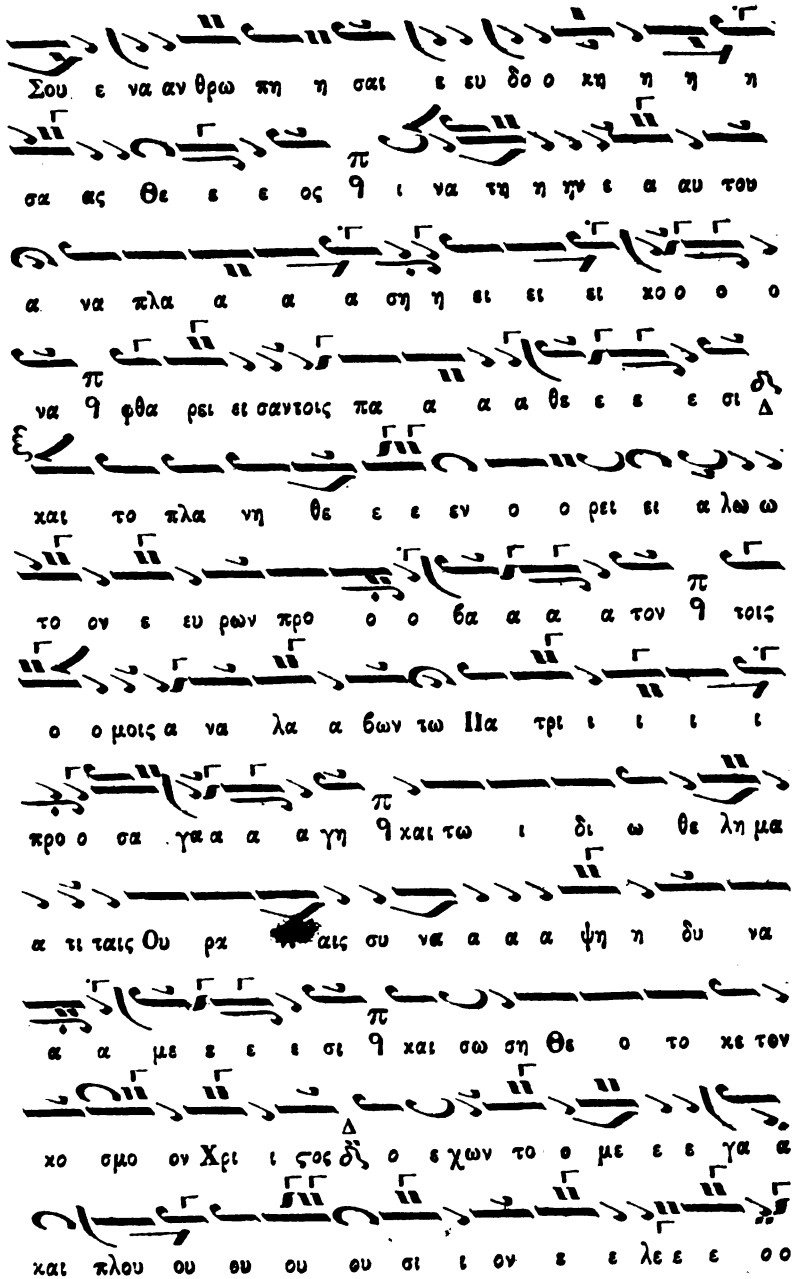 Σου ε να αν θρω πη η σαι ε ευ δο ο κη η η η
σα ας Θε ε ε ος π q ι να τη η ην ε α αυ του
α να πλα α α α ση η ει ει ει κο ο ο ο
να π q φθα ρει ει σαντοις πα α α α θε ε ε ε σι Δ
και το πλα νη θε ε ε εν ο ο ρει ει α λω ω
το ον ε ευ ρων προ ο ο βα α α α τον π q τοις
ο ο μοις α να λα α βων τω Πα τρι ι ι ι ι
προ ο σα γα α α α γη π q και τω ι δι ω θε λη μα
α τι ταις Ου ρα αις συ να α α α ψη η δυ να
α α με ε ε ε σι π q και σω ση Θε ο το κε τον
κο σμο ον Χρι ι ςος Δ ο ε χων το ο με ε ε γα α
και πλου ου ου ου ου σι ι ον ε ε λε ε ε ο ο